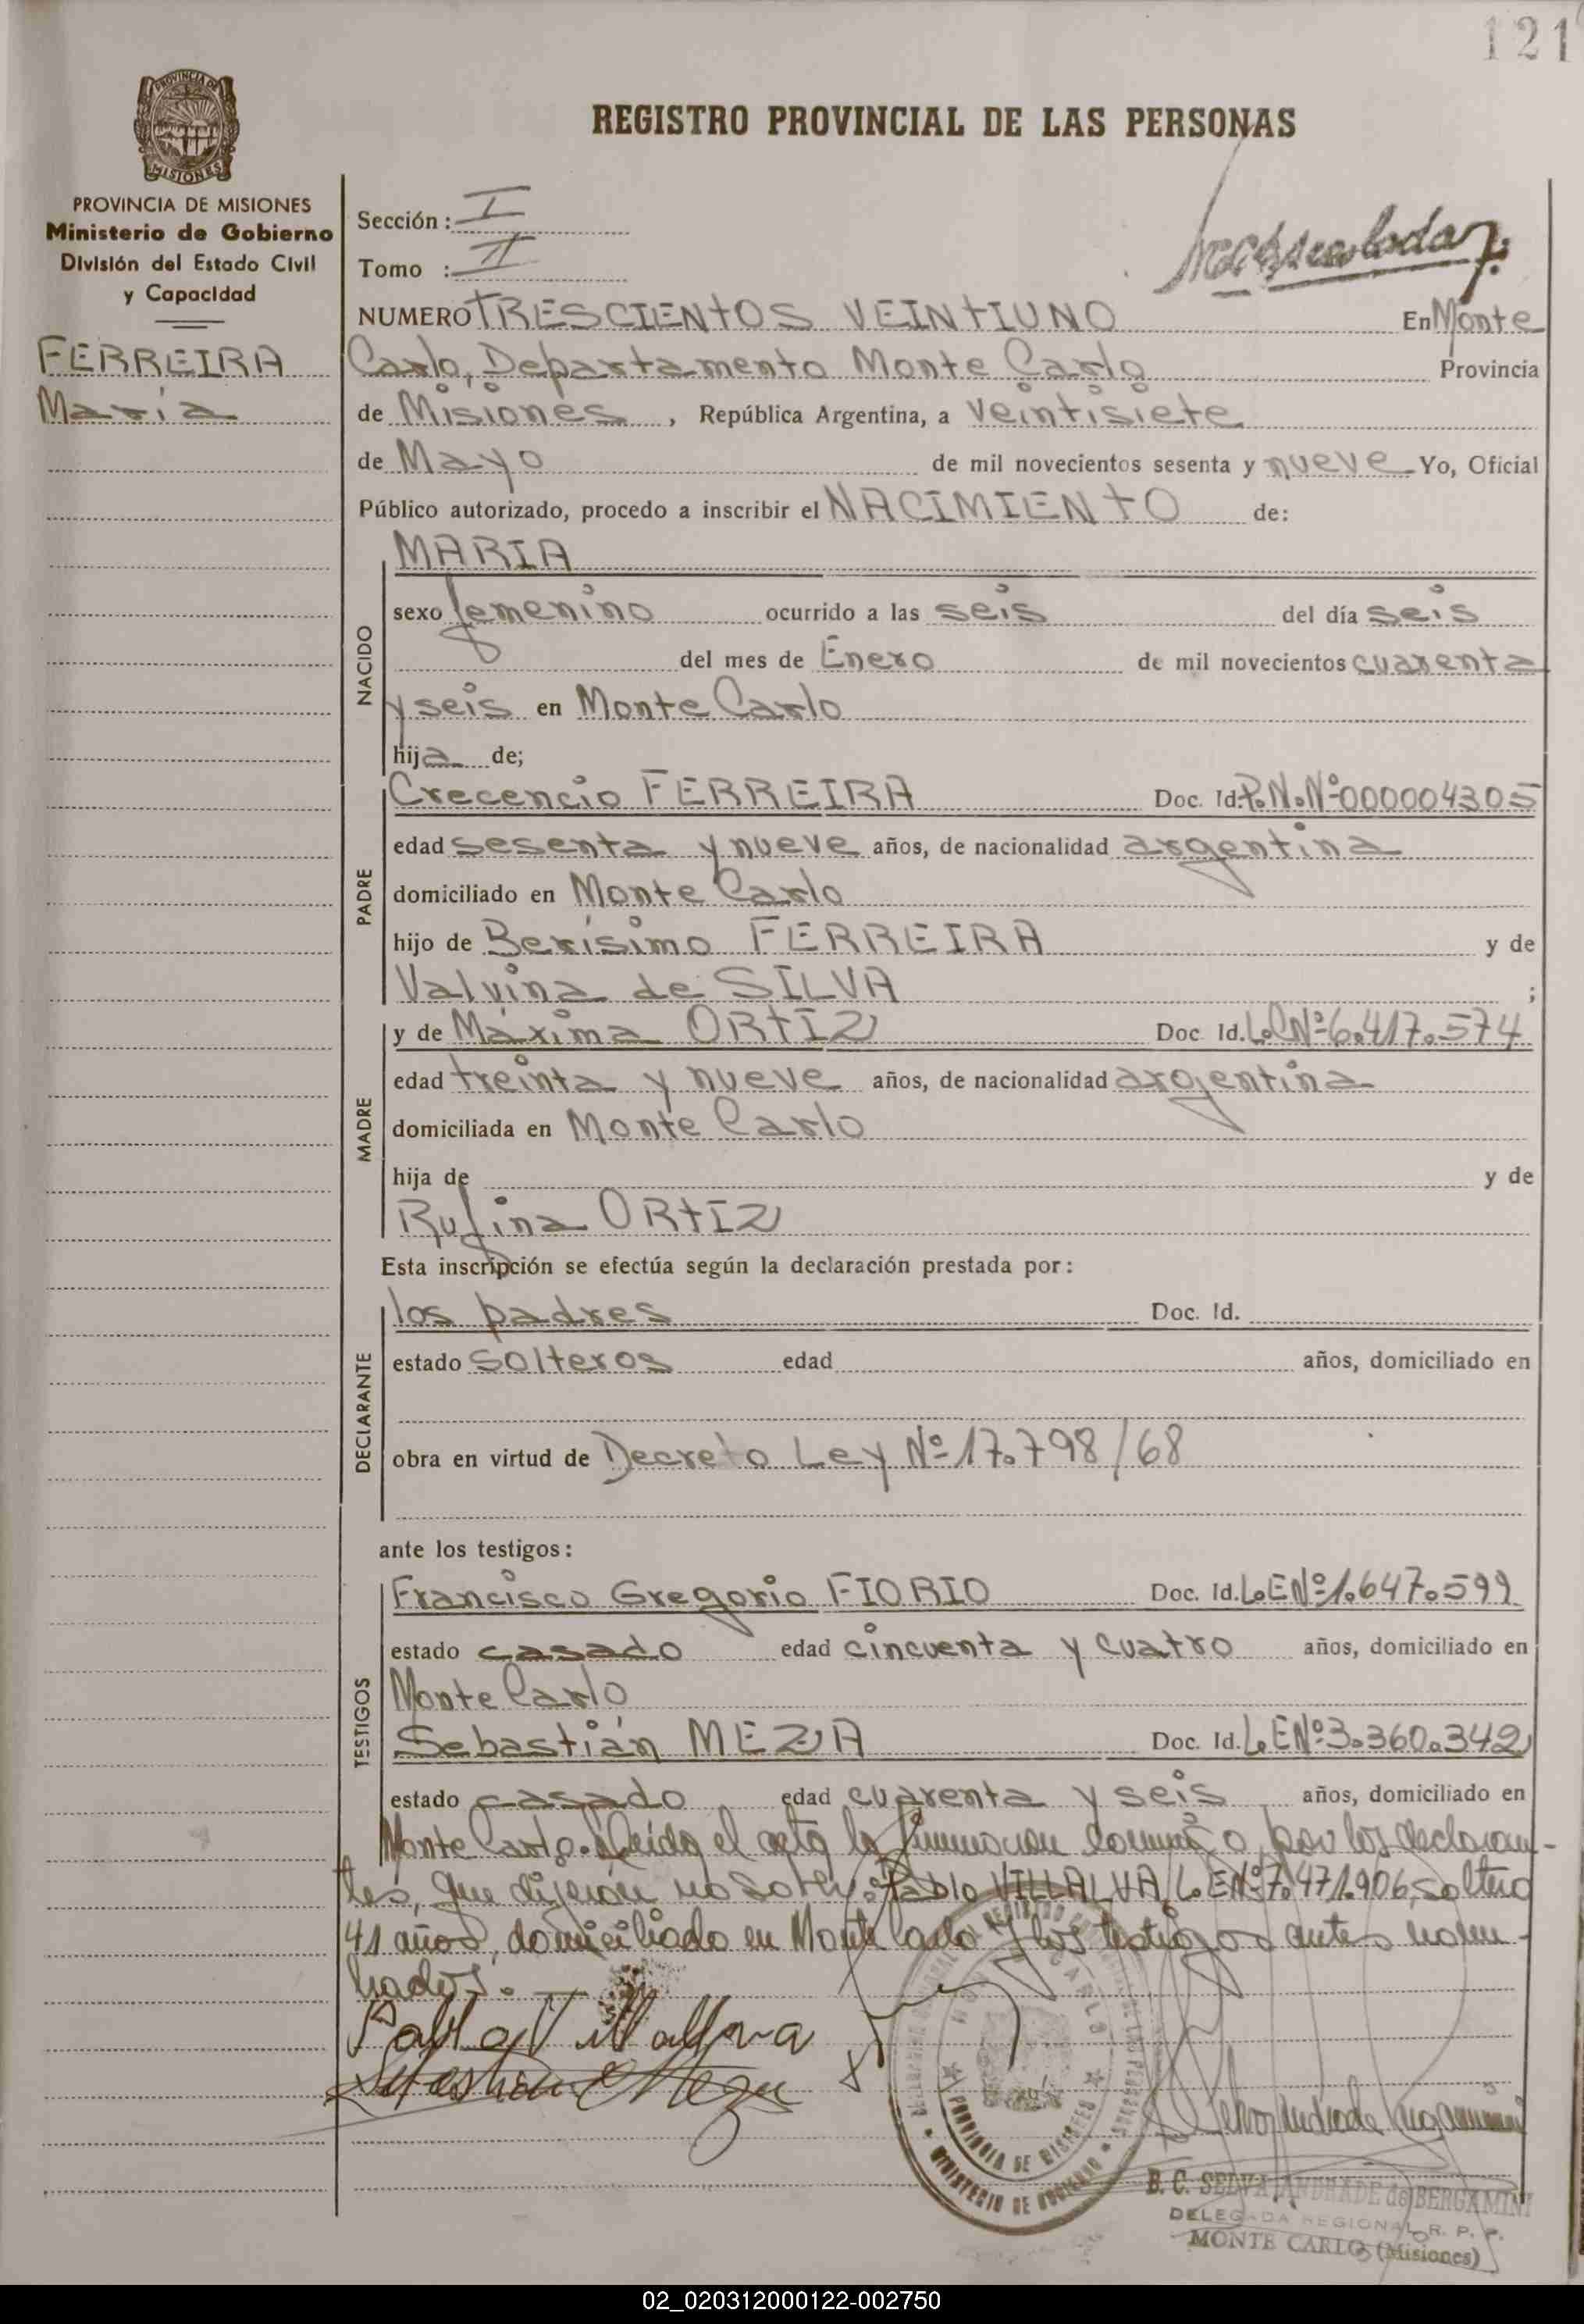 121
PROVINCIA DE MISIONES
REGISTRO PROVINCIAL DE LAS PERSONAS
PROVINCIA DE MISIONES
Ministerio de Gobierno
División del Estado Civil
y Capacidad
FERREIRA
María
Sección: I
Tomo : II
NUMERO TRESCIENTOS VEINTIUNO En Monte
Carlo, Departamento Monte Carlo Provincia
de Misiones, República Argentina, a veintisiete
de Mayo de mil novecientos sesenta y nueve Yo, Oficial
Público autorizado, procedo a inscribir el NACIMIENTO de:
NACIDO
MARIA
sexo femenino ocurrido a las seis del día seis
del mes de Enero de mil novecientos cuarenta
y seis en Monte Carlo
hija de;
PADRE
Crecencio FERREIRA Doc. Id. P.N.Nº000004305
edad sesenta y nueve años, de nacionalidad argentina
domiciliado en Monte Carlo
hijo de Berísimo FERREIRA y de
Valvina de SILVA ;
MADRE
y de Máxima ORTIZ Doc Id. L.C Nº6.417.574
edad treinta y nueve años, de nacionalidad argentina
domiciliada en Monte Carlo
hija de y de
Rufina ORTIZ
Esta inscripción se efectúa según la declaración prestada por:
DECLARANTE
los padres Doc. Id.
estado solteros edad años, domiciliado en
obra en virtud de Decreto Ley Nº17.798/68
ante los testigos:
TESTIGOS
Francisco Gregorio FIORIO Doc. Id. L.E Nº1.647.599
estado casado edad cincuenta y cuatro años, domiciliado en
Monte Carlo
Sebastián MEZA Doc. Id. L.E Nº3.360.342
estado casado edad cuarenta y seis años, domiciliado en
Monte Carlo. Leída el acta la firman por los declaran-
tes, que dijeron no saber: Pablo VILLALVA L.E Nº7.471.906, soltero
41 años, domiciliado en Monte Carlo y los testigos antes nom-
brados.
Pablo Villalva
Sebastian Meza
MONTE CARLO
PROVINCIA DE MISIONES
MINISTERIO DE GOBIERNO
B. C. SELVA ANDRADE de BERGAMINI
DELEGADA REGIONAL R. P. P.
MONTE CARLO (Misiones)
02_020312000122-002750